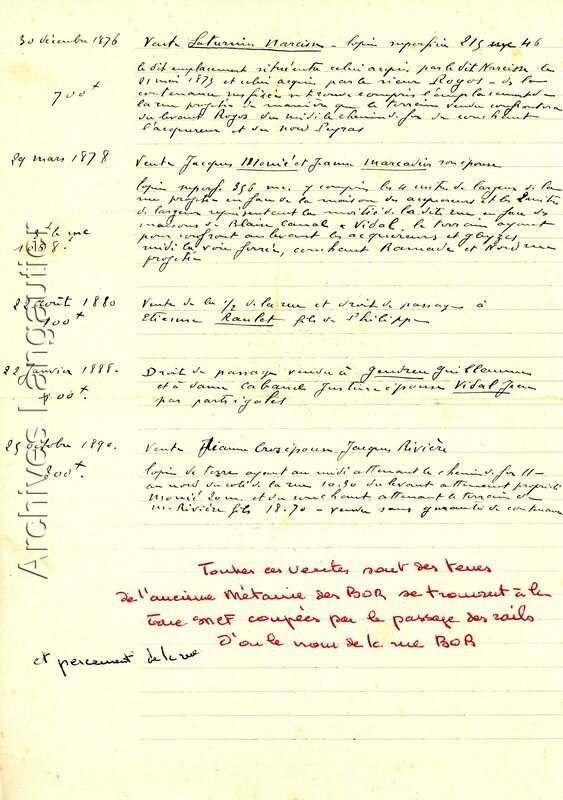 30 décembre 1876 Vente Saturnin Narcisse - lopin superficie 215 46
le dit emplacement situé entre celui acquis par le dit Narcisse le
21 mai 1873 et celui acquis par le sieur Rogos - de la
700 contenance susfixée se trouve compris l'emplacement de
la rue projetée de manière que le terrain vendu confrontera
du levant Rogos du midi le chemin de fer du couchant
l'acquereur et du nord Peyras
29 mars 1878 Vente Jacques Monié et Jeanne Marcadier son épouse
lopin superf 356 m. y compris les 4 mètres de largeur de la
rue projetée en face de la maison des acquereurs et les 2 mètres
de largeur représentant la moitié de la dite rue en face des
maisons de Blaise Canal & Vidal, le terrain ayant
pour confront au levant les acquereurs et
midi la voie ferrée, couchant Ramade et Nord rue
projetée
22 août 1880 Vente de la 1/2 de la rue et droit de passage à
100 Etienne Raulet fils de Philippe
22 Janvier 1888. Droit de passage vendu à Gendreu Guillaume
100 et à dame Cabanel Justine épouse Vidal Jean
par parts égales
25 octobre 1890. Vente Jeanne Cros épouse Jacques Rivière
300 lopin de terre ayant au midi attenant le chemin de fer 11 -
au nord du coté de la rue 10.30 du levant attenant propriété
Monié 20 m. et du couchant attenant le terrain de
m. Rivière fils 18.70 - vendu sans garantie de contenance
Toutes ces ventes sont des terres
de l'ancienne Métairie des BOR se trouvant à la
coupées par le passage des rails
D'ou le nom de la rue BOR
et percement de la rue
Archives Langautier